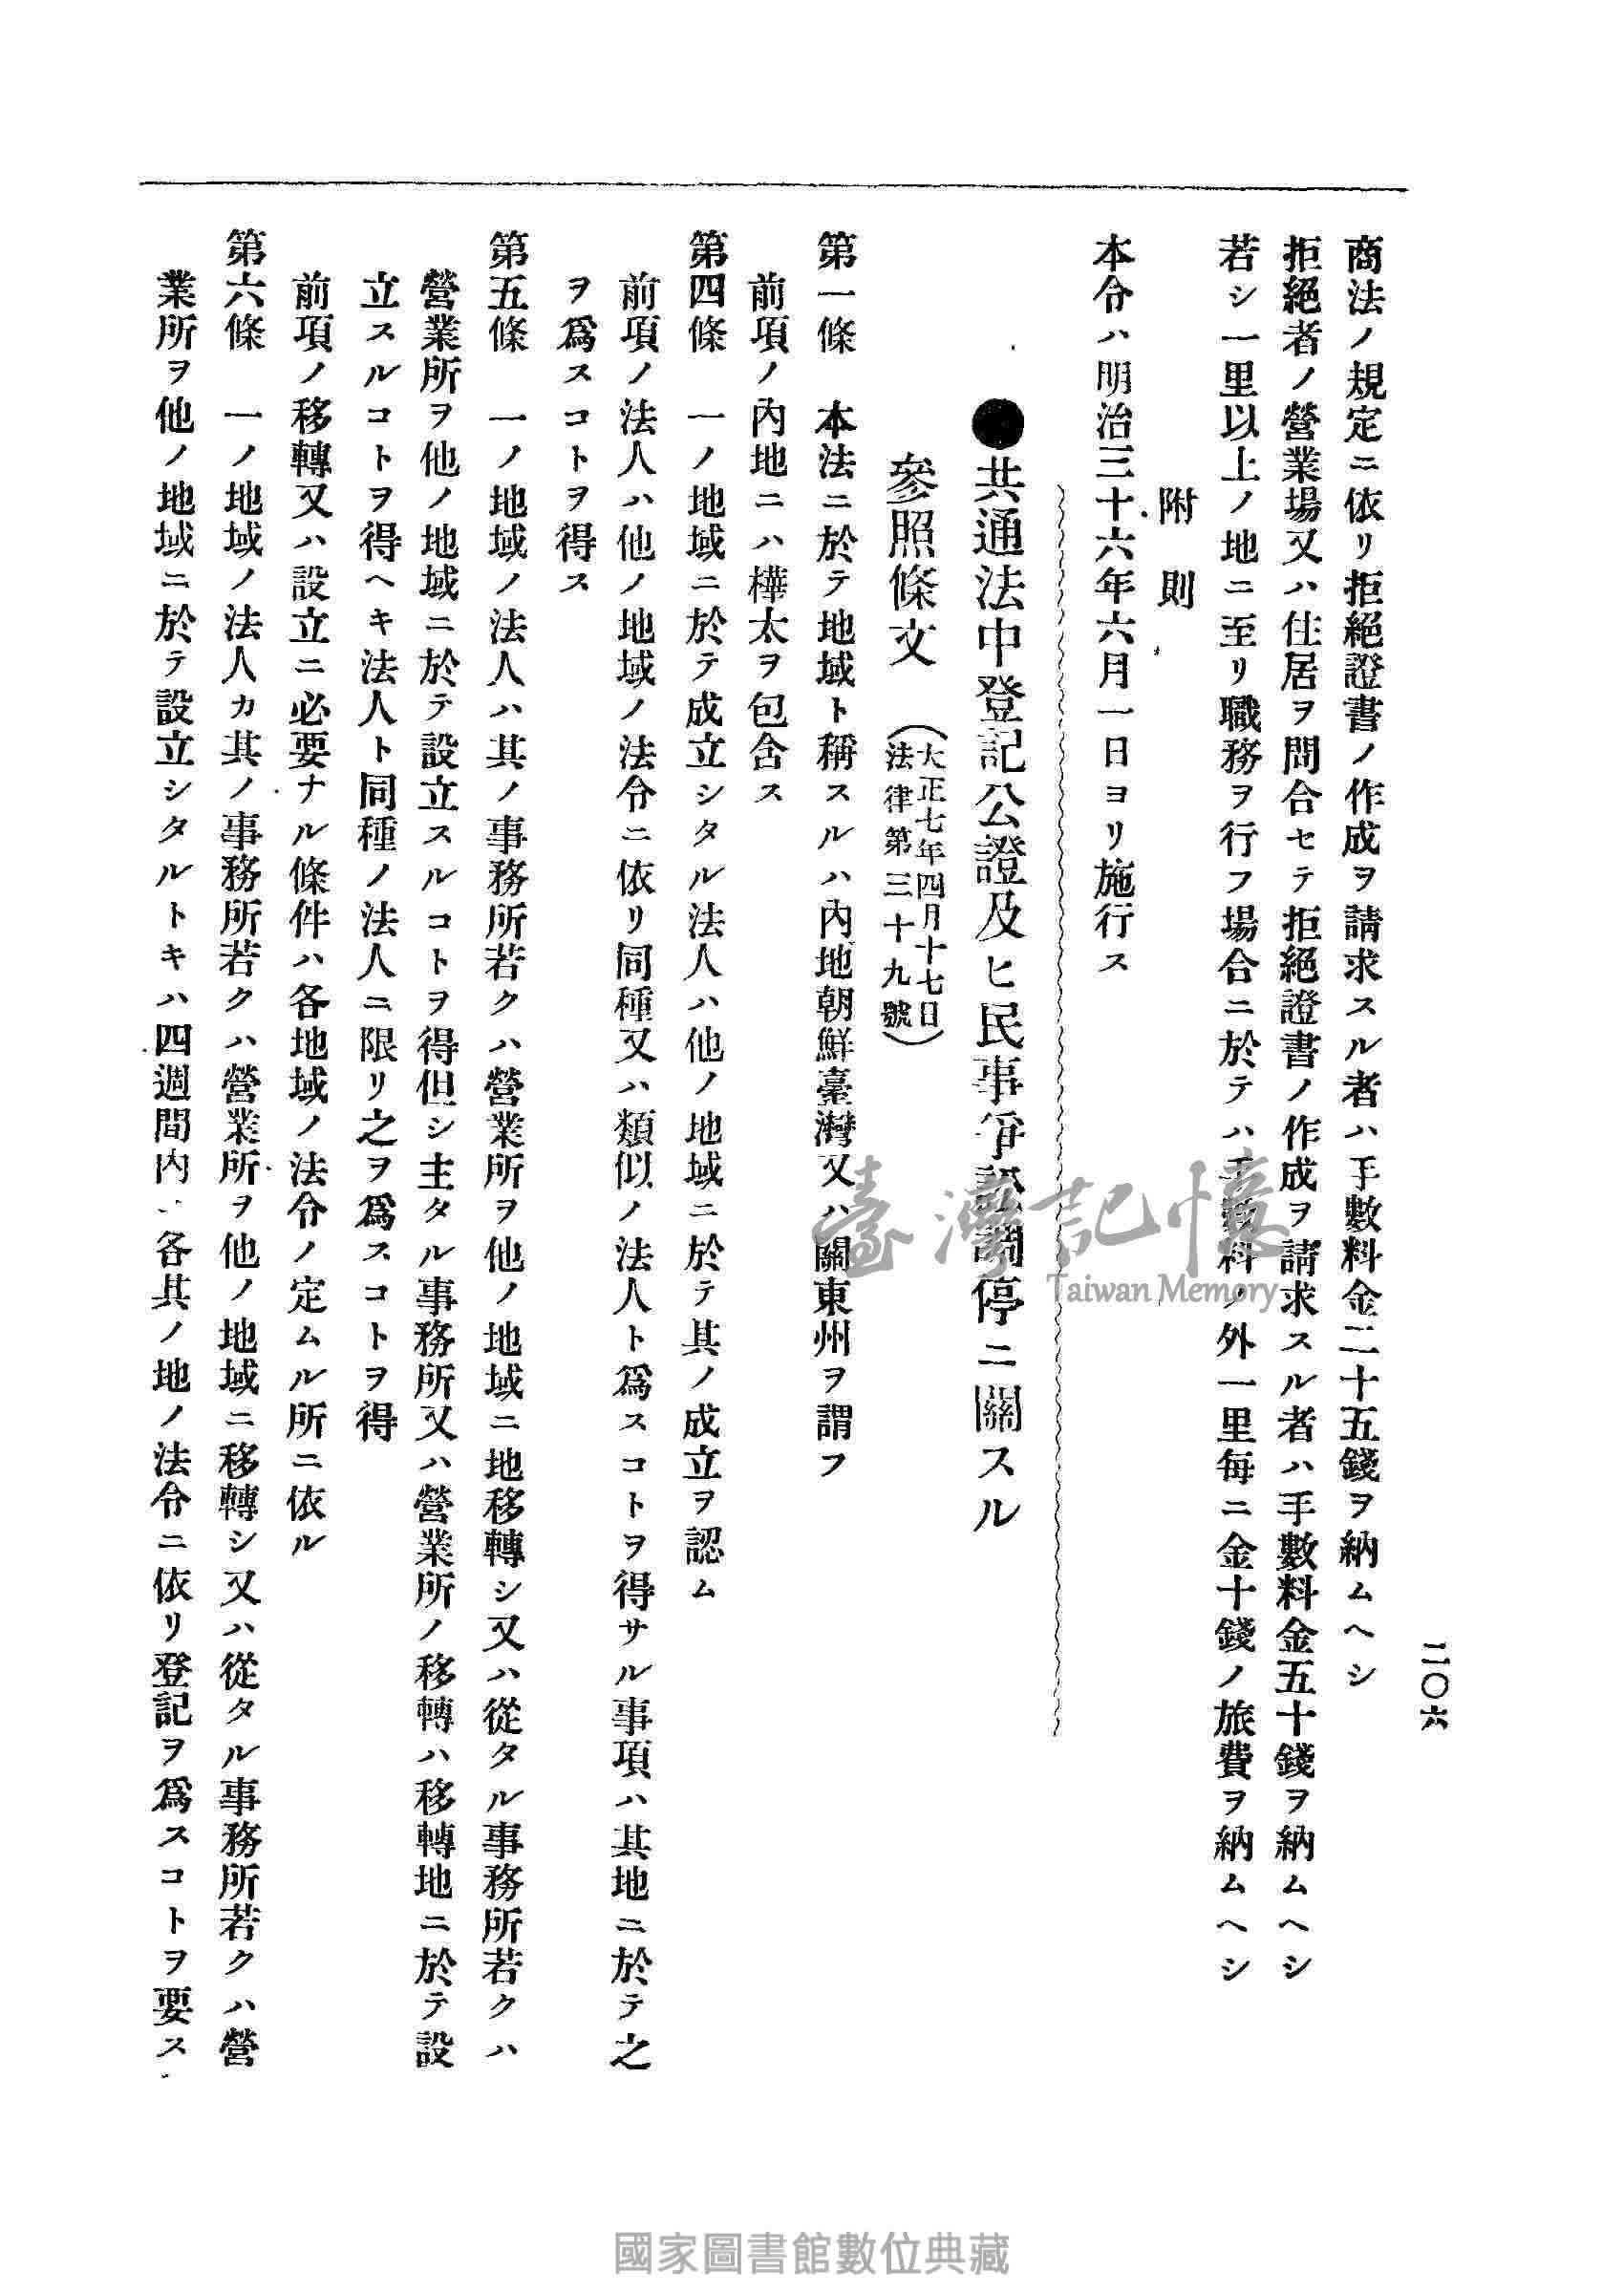 二〇六
商法ノ規定ニ依リ拒絕證書ノ作成ヲ請求スル者ハ手數料金二十五錢ヲ納ムヘシ
拒絕者ノ營業場又ハ住居ヲ問合セテ拒絕證書ノ作成ヲ請求スル者ハ手數料金五十錢ヲ納ムヘシ
若シ一里以上ノ地ニ至リ職務ヲ行フ場合ニ於テハ手數料ノ外一里每ニ金十錢ノ旅費ヲ納ムヘシ
附則
本令ハ明治三十六年六月一日ヨリ施行ス
●共通法中登記公證及ヒ民事爭訟調停ニ關スル
參照條文
(大正七年四月十七日
法律第三十九號)
第一條 本法ニ於テ地域ト稱スルハ內地朝鮮臺灣又ハ關東州ヲ謂フ
前項ノ內地ニハ樺太ヲ包含ス
第四條 一ノ地域ニ於テ成立シタル法人ハ他ノ地域ニ於テ其ノ成立ヲ認ム
前項ノ法人ハ他ノ地域ノ法令ニ依リ同種又ハ類似ノ法人ト爲スコトヲ得サル事項ハ其地ニ於テ之
ヲ爲スコトヲ得ス
第五條 一ノ地域ノ法人ハ其ノ事務所若クハ營業所ヲ他ノ地域ニ地移轉シ又ハ從タル事務所若クハ
營業所ヲ他ノ地域ニ於テ設立スルコトヲ得但シ主タル事務所又ハ營業所ノ移轉ハ移轉地ニ於テ設
立スルコトヲ得ヘキ法人ト同種ノ法人ニ限リ之ヲ爲スコトヲ得
前項ノ移轉又ハ設立ニ必要ナル條件ハ各地域ノ法令ノ定ムル所ニ依ル
第六條 一ノ地域ノ法人カ其ノ事務所若クハ營業所ヲ他ノ地域ニ移轉シ又ハ從タル事務所若クハ營
業所ヲ他ノ地域ニ於テ設立シタルトキハ四週間內ニ各其ノ地ノ法令ニ依リ登記ヲ爲スコトヲ要ス
臺灣記憶
Taiwan Memory
國家圖書館數位典藏